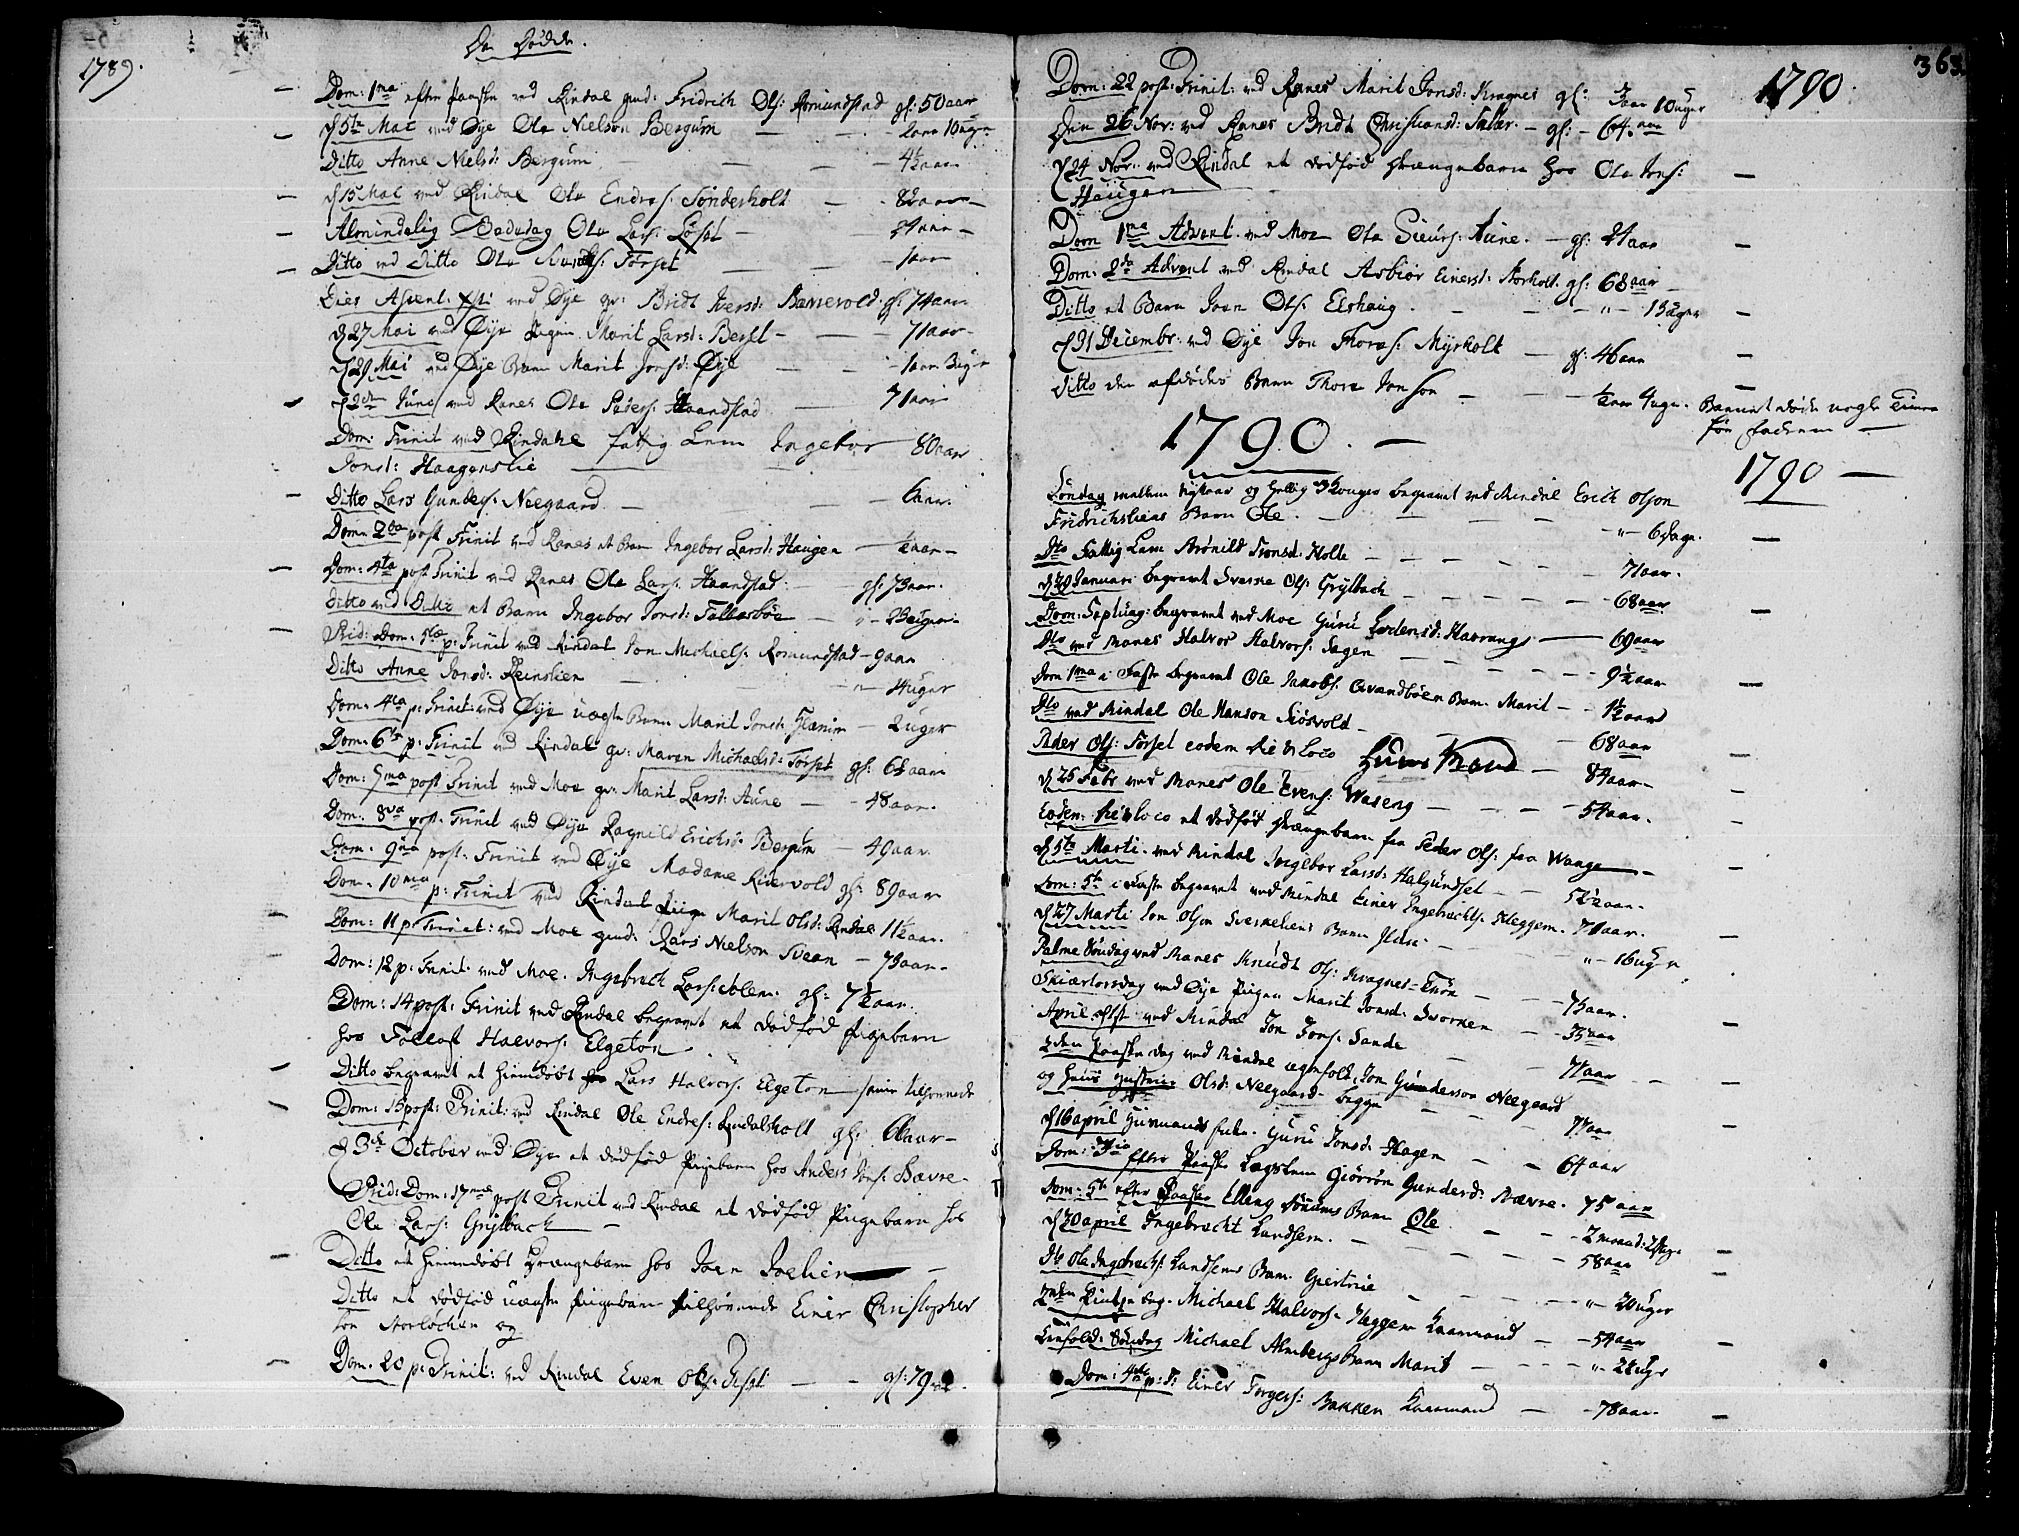 1789.
De Døde.
Dom: 1ma efter Paaske ved Rindal gmd: Fridrich Ols: Romundstad gl: 50 aar
d 5te Mai ved Øye Ole Nielson Bergum 2 aar 10 uger
Ditto Anne Nielsd: Bergum 4½ aar
d 15 Mai ved Rindal Ole Endres: Sönderholt 82 aar
Almindelig Bededag Ole Lars: Löset 24 aar
Ditto ved Ditto Ole Ols: Torset 1 aar
Dies Ascens: Xsti ved Øye gv: Bridt Iversd: Barrevold gl: 74 aar
d 27 Mai ved Øye Pigen Marit Larsd: Berset 71 aar
d 29 Mai ved Øye Barn Marit Jonsd: Øye 1 aar 3 uger
d 2den Juni ved Ranes Ole Peders: Haandstad 71 aar
Dom: Trinit ved Rindahl fattig Lem Ingebor 80 aar
Jonsd: Haagenslie
Ditto Lars Gunders: Neegaard 6 aar
Dom: 2da post Trinit ved Ranes et Barn Ingebor Larsd: Haugen ½ aar
Dom: 4ta post Trinit ved Ranes Ole Lars: Haandstad gl: 73 aar
Ditto ved Ditto et Barn Ingebor Jonsd: Talleråsböe 23 uger
Dom: 5te p: Trinit ved Rindal Jon Michaels: Romundstad 9 aar
Ditto Anne Jonsd: Reinslien 14 uger
Dom: 4ta p: Trinit: ved Øye uægte Barn Marit Jonsd: Glærum 2 uger
Dom: 6te p: Trinit ved Rindal gv: Maren Michaelsd: Torset gl: 68 aar
Dom: 7ma post Trinit ved Moe gv: Marit Larsd: Aune 48 aar
Dom: 8va post Trinit ved Øye Ragnild Erichsd: Bergum 49 aar
Dom: 9na post: Trinit ved Øye Madame Ridervold gl: 89 aar
Dom: 10ma p: Trinit ved Rindal Pige Marit Olsd: Rindal 11½ aar
Dom: 11 p: Trinit: ved Moe gmd: Lars Nielson Svean 73 aar
Dom: 12 p: Trinit ved Moe Ingebrech Lars: Solem gl: 7½ aar
Dom: 14 post: Trinit ved Rindal begravet et dødfød Pigebarn
hos Tollost Halvors: Elgeton
Ditto begravet et hiemdøbt Lars Halvors: Elgeton tilhørende
Dom: 15 post: Trinit: ved Rindal Ole Endres: Rindalsholt gl: 66 aar
d 3de October ved Øye et dødfød Pigebarn hos Anders Jons: Bævre
Dom: 17ma post Trinit ved Rindal et dødfød Pigebarn hos
Ole Lars: Grytbach
Ditto et hiemdøbt Drængebarn hos Joen Joelien
Ditto et dødfød uægte Pigebarn tilhørende Einer Christopher
søn Storlochen og
Dom: 20 p: Trinit: ved Rindal Even Ols: gl: 79 aar
363.
1790.
Dom: 22 post: Trinit: ved Ranes Marit Jonsd: Kragnes gl: 3 aar 10 uger
Den 26 Nov: ved Ranes Bridt Christiansd: Sæter gl: 64 aar
d 24 Nov: ved Rindal et dødfød Drængebarn hos Ole Jons:
Haugen
Dom 1ma Advent ved Moe Ole Siurs: Aune gl: 24 aar
Dom: 2da Advent ved Rindal Asbiør Einersd: Storholt gl: 68 aar
Ditto et Barn Joen Ols: Elshaug 13 uger
d 31 Decembr: ved Øye Jon Thores: Myrholt gl: 46 aar
Ditto den afdødes Barn Thore Jonson ½ aar 4 uger. Barnet døde nogle Timer
før Faderen
1790.
1790
Söndag mellem Nytaar og Hellig 3 Konger begravet ved Rindal Erich Olson
Fridrichsliens Barn Ole 6 Dage
Dto Fattig Lem Brönild Tronsd: Holte 71 aar
d 20 Januari begravet Sverke Ols: Grytbach 68 aar
Dom: Septuag: begravet ved Moe Guru Lodensd: Haarang 69 aar
Dto ved Ranes Halvor Halvors: Sagen 9½ aar
Dom 1ma i Faste begravet Ole Jakobs: Qvandböen Barn Marit 1½ aar
Dto ved Rindal Ole Hanson Siösvold 68 aar
Peder Ols: Torset eodem die & loco Huus Mand 84 aar
d 25 Febr ved Ranes Ole Evens: Waseng 54 aar
Eodem die & loco et dødfød Drængebarn fra Peder Ols: fra Wange
d 5te Marti ved Rindal Ingebor Larsd: Halgundset 52½ aar
Dom: 5te i Faste begravet ved Rindal Einer Ingebrichts: Heggem 71 aar
d 27 Marti Jon Olson Sverkeliens Barn 16 uger
Palme Söndag ved Ranes Knudt Ols: Kragnes-Trön 73 aar
Skiærtorsdag ved Øye Pigen Marit Jonsd: Svorken 33 aar
April ved Rindal Jon Jons: Sande 71 aar
2den Paaske dag ved Rindal ægtefolk Jon Gunderson Neegaard
og hans Hustrue Olsd: Neegaard begge 77 aar
d 16 april Huusmands Enke Guru Jonsd: Hagen 64 aar
Dom: 3tia efter Paaske Lægslem Giörrön Gundersd: Bævre 75 aar
Dom: 5te efter Paaske Elling Dönnems Barn Ole 2 maad:
d 30 april Ingebrecht Landsem 58 aar
Dto Ole Ingebrechts: Landsems Barn Giertrue 20 uger
2den Pintze dag Michael Halvors: Heggem Kaarmand 54 aar
Trefold: Söndag Michael Almbergs Barn Marit 22 uger
Dom: 4te p: T: Einer Torgers: Bakken Kaarmand 78 aar